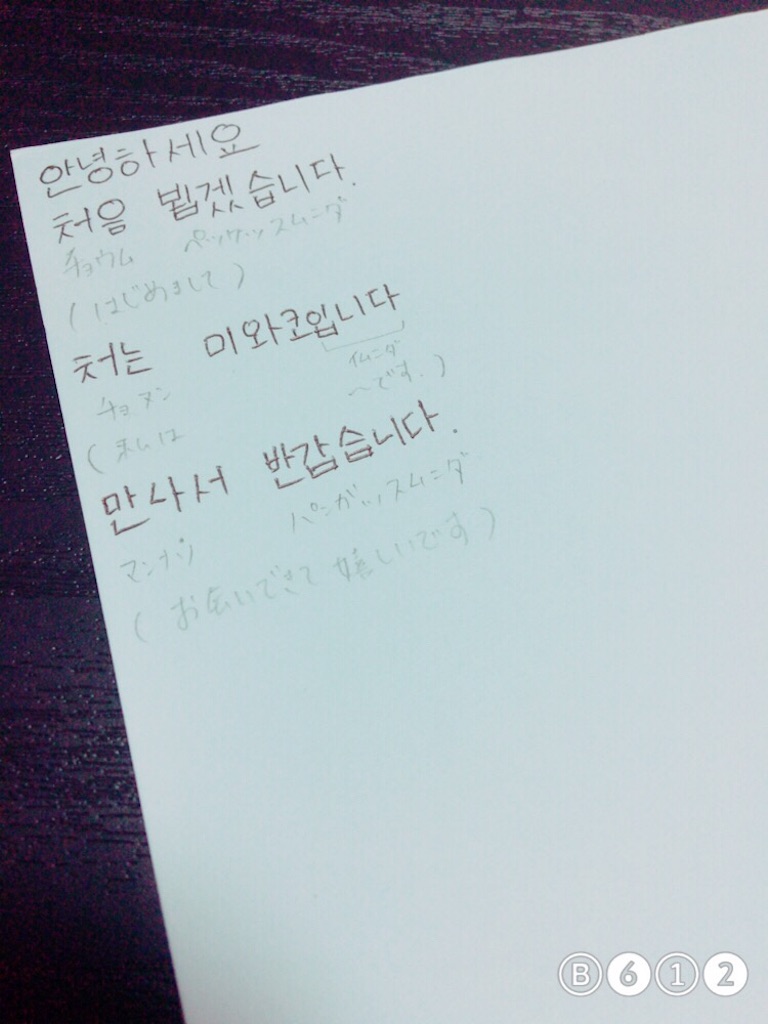 안녕하세요
처음 뵙겠습니다.
チョウム ペッケッスムニダ
(はじめまして)
처는 미와코입니다
チョヌン イムニダ
(私は ～です。)
만사서 반갑습니다.
マンナソ パンガッスムニダ
(お会いできて 嬉しいです)
B612